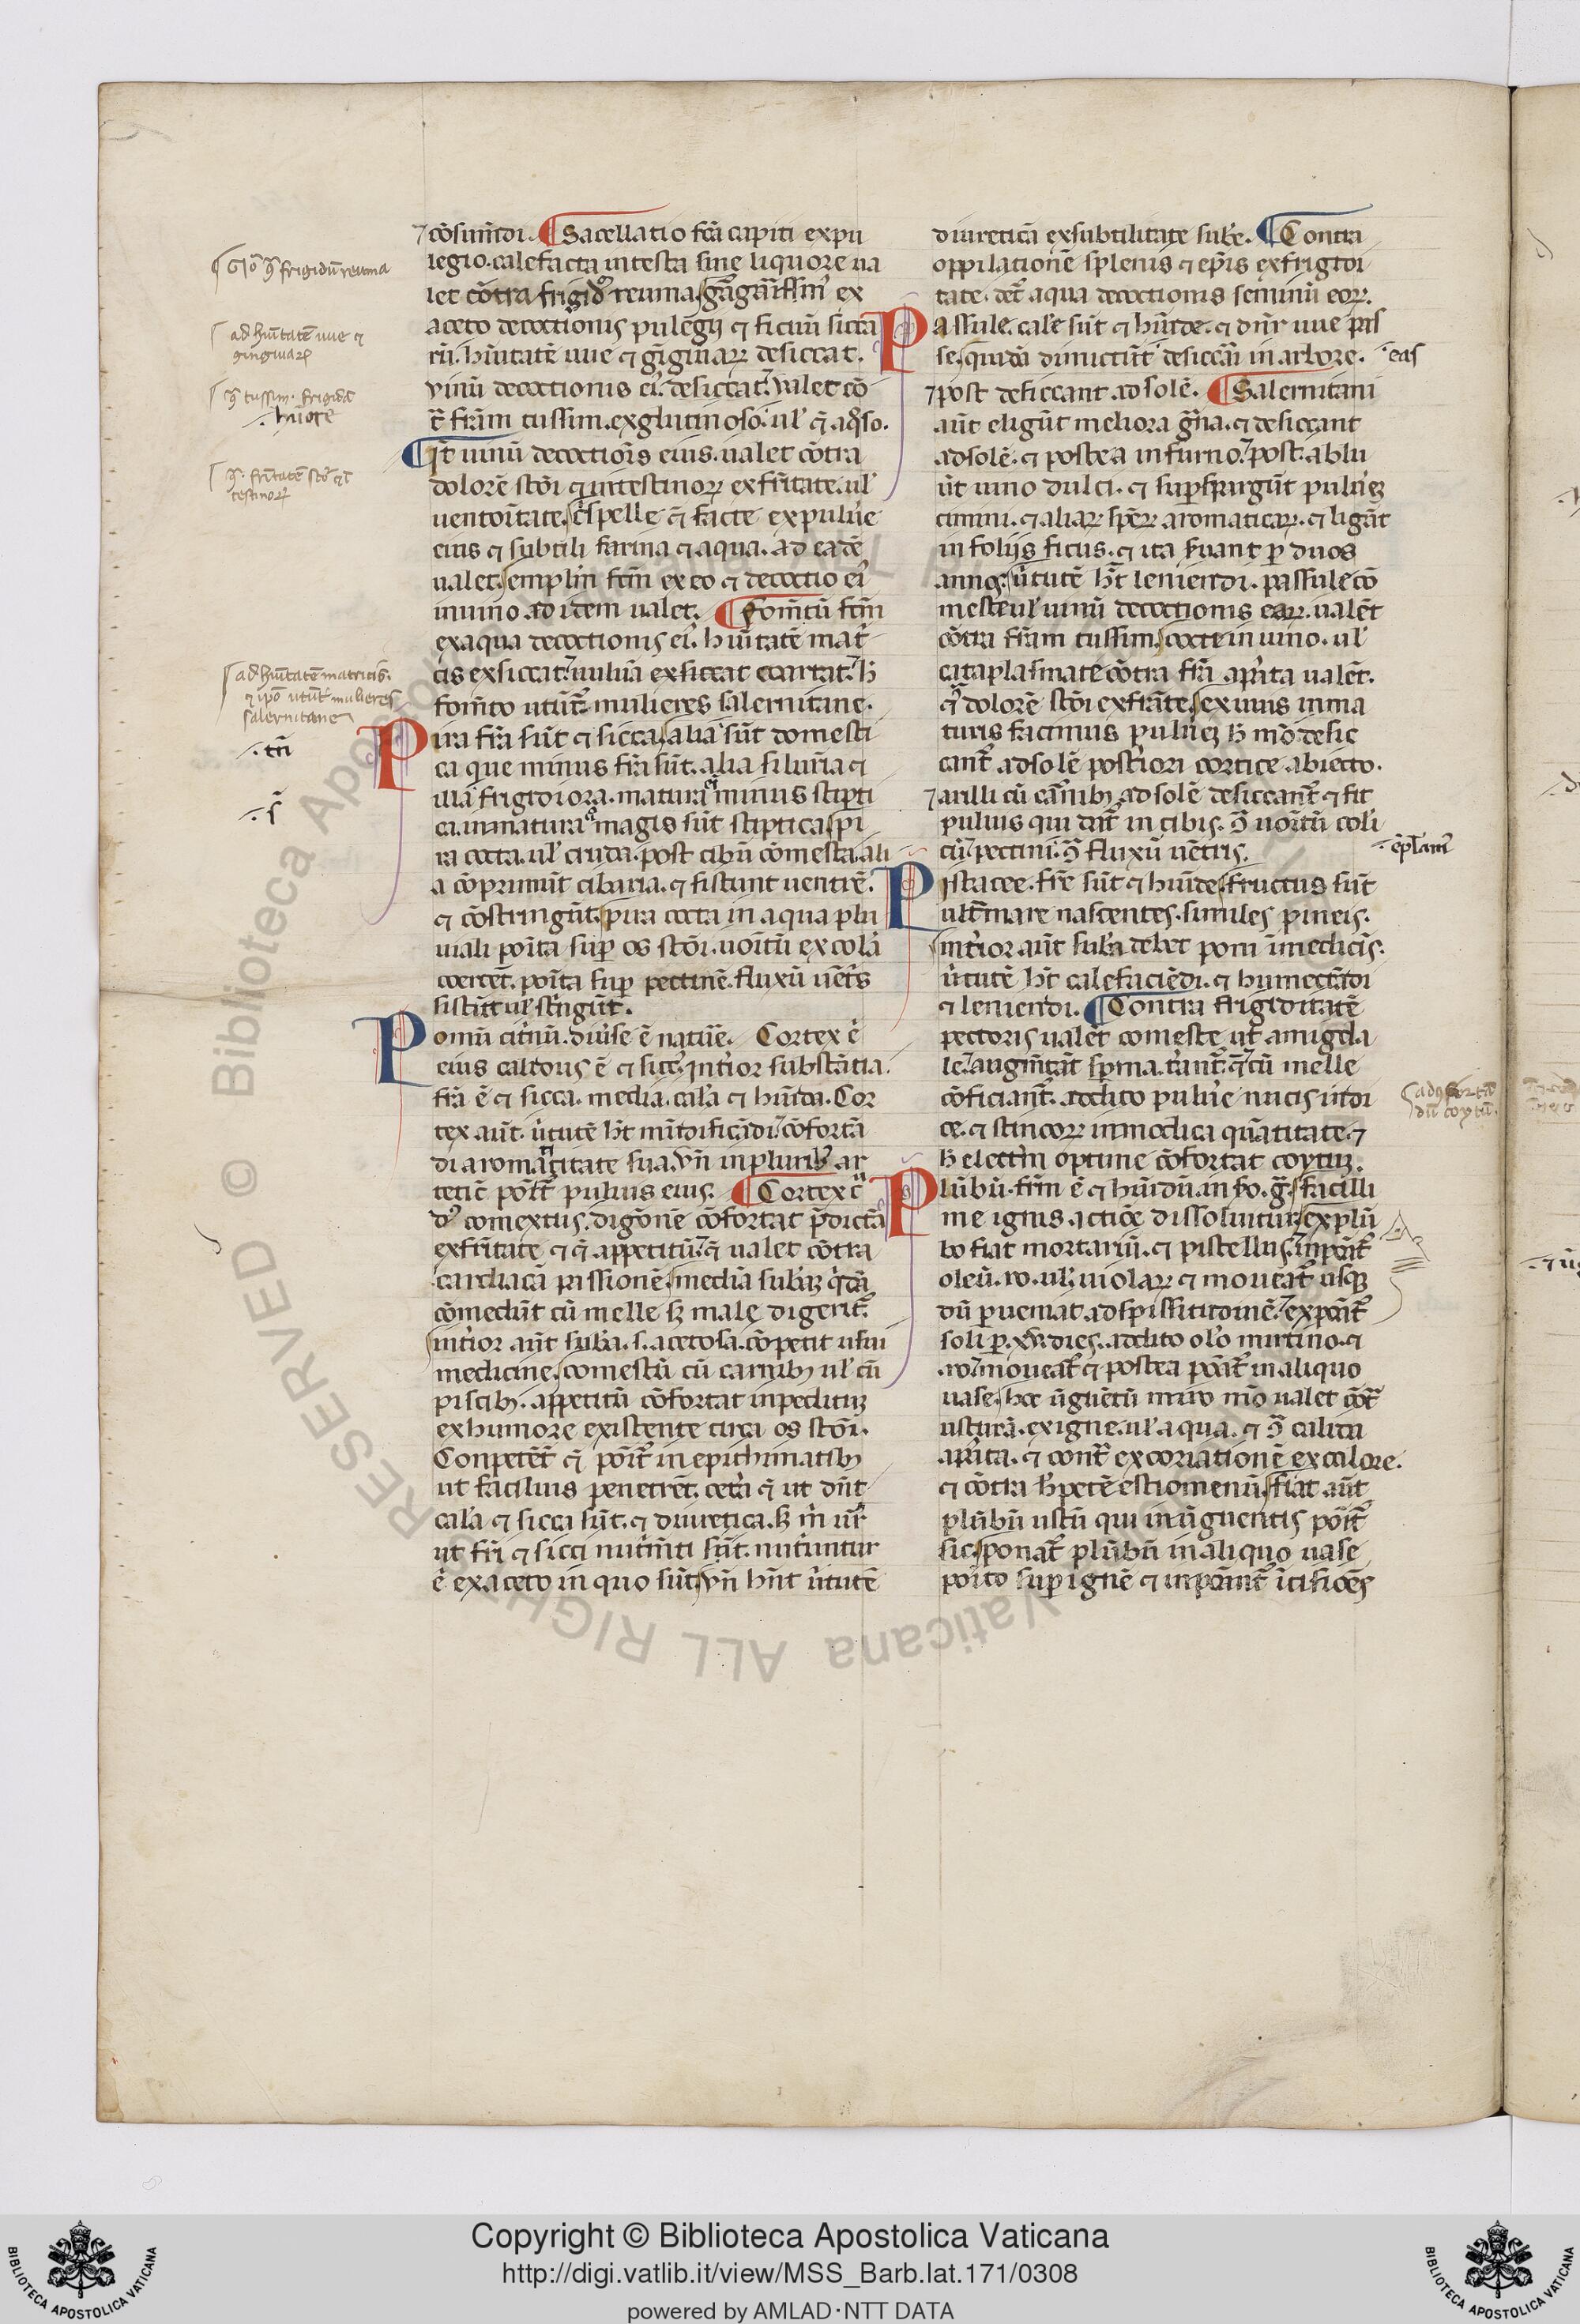 ⁊ cōsum̄di. ¶ Sacellatio fc̄a capiti ex pu
legio. calefacta in testa sine liquore ua
let cōtra frigidū reuma. gargarissm̄ ex
aceto decoctionis pulegij ⁊ ficuū sicca
rū. hūitatē uue ⁊ gīgiuaꝝ desiccat.
vinū decoctionis ei᾽ desiccat. valet cō
tͣ fr̄am tussim. ex glutinoso. ul᾽
¶ Itē uinū decoctiōis eius. ualet cōtra
dolorē stōi ⁊ intestinoꝝ ex fr̄itate. ul᾽
uentositate. facte ex puluē
eius ⁊ subtili farina ⁊ aqua. ad eadē
ualet. emplm̄ fcm̄ ex eo ⁊ decoctio ei᾽
in uino ad idem ualet. ¶ Fom̄tū fcm̄
ex aqua decoctionis ei᾽. hūitatē mat̄
cis exsiccat. uuluā exsiccat ⁊ coartat. h̄
fom̄to utūt᾽ mulieres salernitane.
Pira fr̄a sūt ⁊ sicca. alia sūt domesti
ca que minus fr̄a sūt. alia silur̄ia ⁊
illa frigidiora. matura minus stipti
ca. inmatura magis sūt stiptica. pi
ra cocta. ul᾽ cruda. post cibū comesta. ali
a cōprimūt cibaria. ⁊ fistunt uentrē.
⁊ cōstringūt. pira cocta in aqua plu
uiali pōita sup̄ os stōi. uoītū ex colā
coercēt. pōita sup̄ pectinē. fluxū uēt᾽s
sistūt ul᾽ st᾽ngūt.
Pomū cit᾽nū. diu᾽se ē natuē. Cortex ē
eius calidus ē ⁊ sicc᾽. int᾽ior substātia.
fr̄a ē ⁊ sicca. media. cal᾽a ⁊ hūida. Cor
tex aūt. ūtutē h̄t mūdificādi. cōfortā
di aromaticitate sua. vn̄ in plurib᾽ ar
tetic̄ pōt᾽ puluis eius. ¶ Cortex ē
comextus. digōnē cōfortat p̄dictā
ex fr̄itate ⁊ appetitū. ualet cōtra
cardiacā passionē. mediā sub᾽aꝫ q᾽dā
comedūt cū melle sꝫ male digerit᾽
int᾽ior aūt sub᾽a. s. acetosa. cōpetit usui
medicine. comestū cū carnibꝫ ul᾽ cū
piscibꝫ. appetitū cōfortat inpeditūꝫ
ex humore existente circa os stōi.
Conpetēt ⁊ pōit᾽ in epithimatibꝫ
ut facilius penetrēt. cet᾽a ⁊ ut dn̄t
cal᾽a ⁊ sicca sūt. ⁊ diuretica. sꝫ
ut fr̄i ⁊ sicci nutm̄ti sūt. nutriuntur
ē ex aceto in quo sūt. vn̄ hn̄t ūtutē
diureticā ex subtilitate sub᾽e. ¶ Contra
oppilationē splenis ⁊ epīs ex frigidi
tate. det᾽ aqua decoctionis seminū eoꝝ.
Passule. cal᾽e sūt ⁊ hūide. ⁊ dn̄r uue pas
se. quidā dimictūt desiccari in arbore.
⁊ post desiccant ad solē. ¶ Salernitani
aūt eligūt meliora gͣna. ⁊ desiccant
ad solē. ⁊ postea in furno. post ablu
ūt uino dulci. ⁊ sup̄spargūt puluēꝫ
cimini. ⁊ aliaꝝ sperꝝ aromaticaꝝ. ⁊ ligāt
in folijs ficus. ⁊ ita s᾽uant p̄ duos
annos. ūtutē h̄t leniendi. passule cō
meste ul᾽ uinū decoctionis eaꝝ. ualēt
cōtra fr̄am tussim. cocte in uino. ul᾽
cataplasmate cōtra fr̄a ap̄ita ualēt.
dolorē stōi ex fr̄itate. ex uuis inma
turis facimus puluēꝫ h̄ mō. desic
cant᾽ ad solē posteriori cortice abiecto.
⁊ arilli cū carnibꝫ ad solē desiccant᾽ ⁊ fit
puluis qui dat᾽ in cibis. uoītū coli
cū. pectini. fluxū uētris.
Pistacee. fr̄e sūt ⁊ hūide. fructus sūt
ultͣ mare nascentes. similes pineis.
int᾽ior aūt sub᾽a debet poni i medicīs.
ūtutē h̄t calefaciēdi. ⁊ humectādi
⁊ leniendi. ¶ Contra frigiditatē
pectoris ualēt comeste ut amigda
le. augmtāt sp̄ma. cū melle
cōficiant᾽. addito puluē nucis indi
ce. ⁊ stincoꝝ in modica quātitate. ⁊
h̄ elettm̄ optime cōfortat coytūꝫ.
Plūbū. fr̄m ē ⁊ hūidū. in fo. g̃. facilli
me ignis actiōe dissoluitur. ex plū
bo fiat mortariū. ⁊ pistellus. inponat᾽
oleū. ro. ul᾽ uiolaꝝ ⁊ moueat᾽ usqꝫ
dū p̄ueniat ad spissitudinē. exponat᾽
soli p̄. dies. addito ol᾽o mirtino. ⁊
ro. moueat᾽ ⁊ postea ponat᾽ in aliquo
uase. hoc ūguētū miro mō ualet cōtͣ
usturā. ex igne. ul᾽ aqua. ⁊ calida
ap̄ita. ⁊ contͣ excoriationē ex calore.
⁊ cōtra h᾽petē estiomenū. fiat aūt
plūbū ustū qui in ūguentis pōit᾽
sic. ponat᾽ plūbū in aliquo uase
pōito sup̄ ignē ⁊
frigidū reuma
ad hūitatē uue ⁊
gingiuaꝝ
tussim frigidā
hūorē
testinoꝝ
ad hūitatē matricis.
⁊ ip̄o utūt᾽ mulieres
salernitane
eas
Copyright © Biblioteca Apostolica Vaticana
http://digi.vatlib.it/view/MSS_Barb.lat.171/0308
powered by AMLAD·NTT DATA
BIBLIOTECA APOSTOLICA VATICANA
BIBLIOTECA APOSTOLICA VATICANA